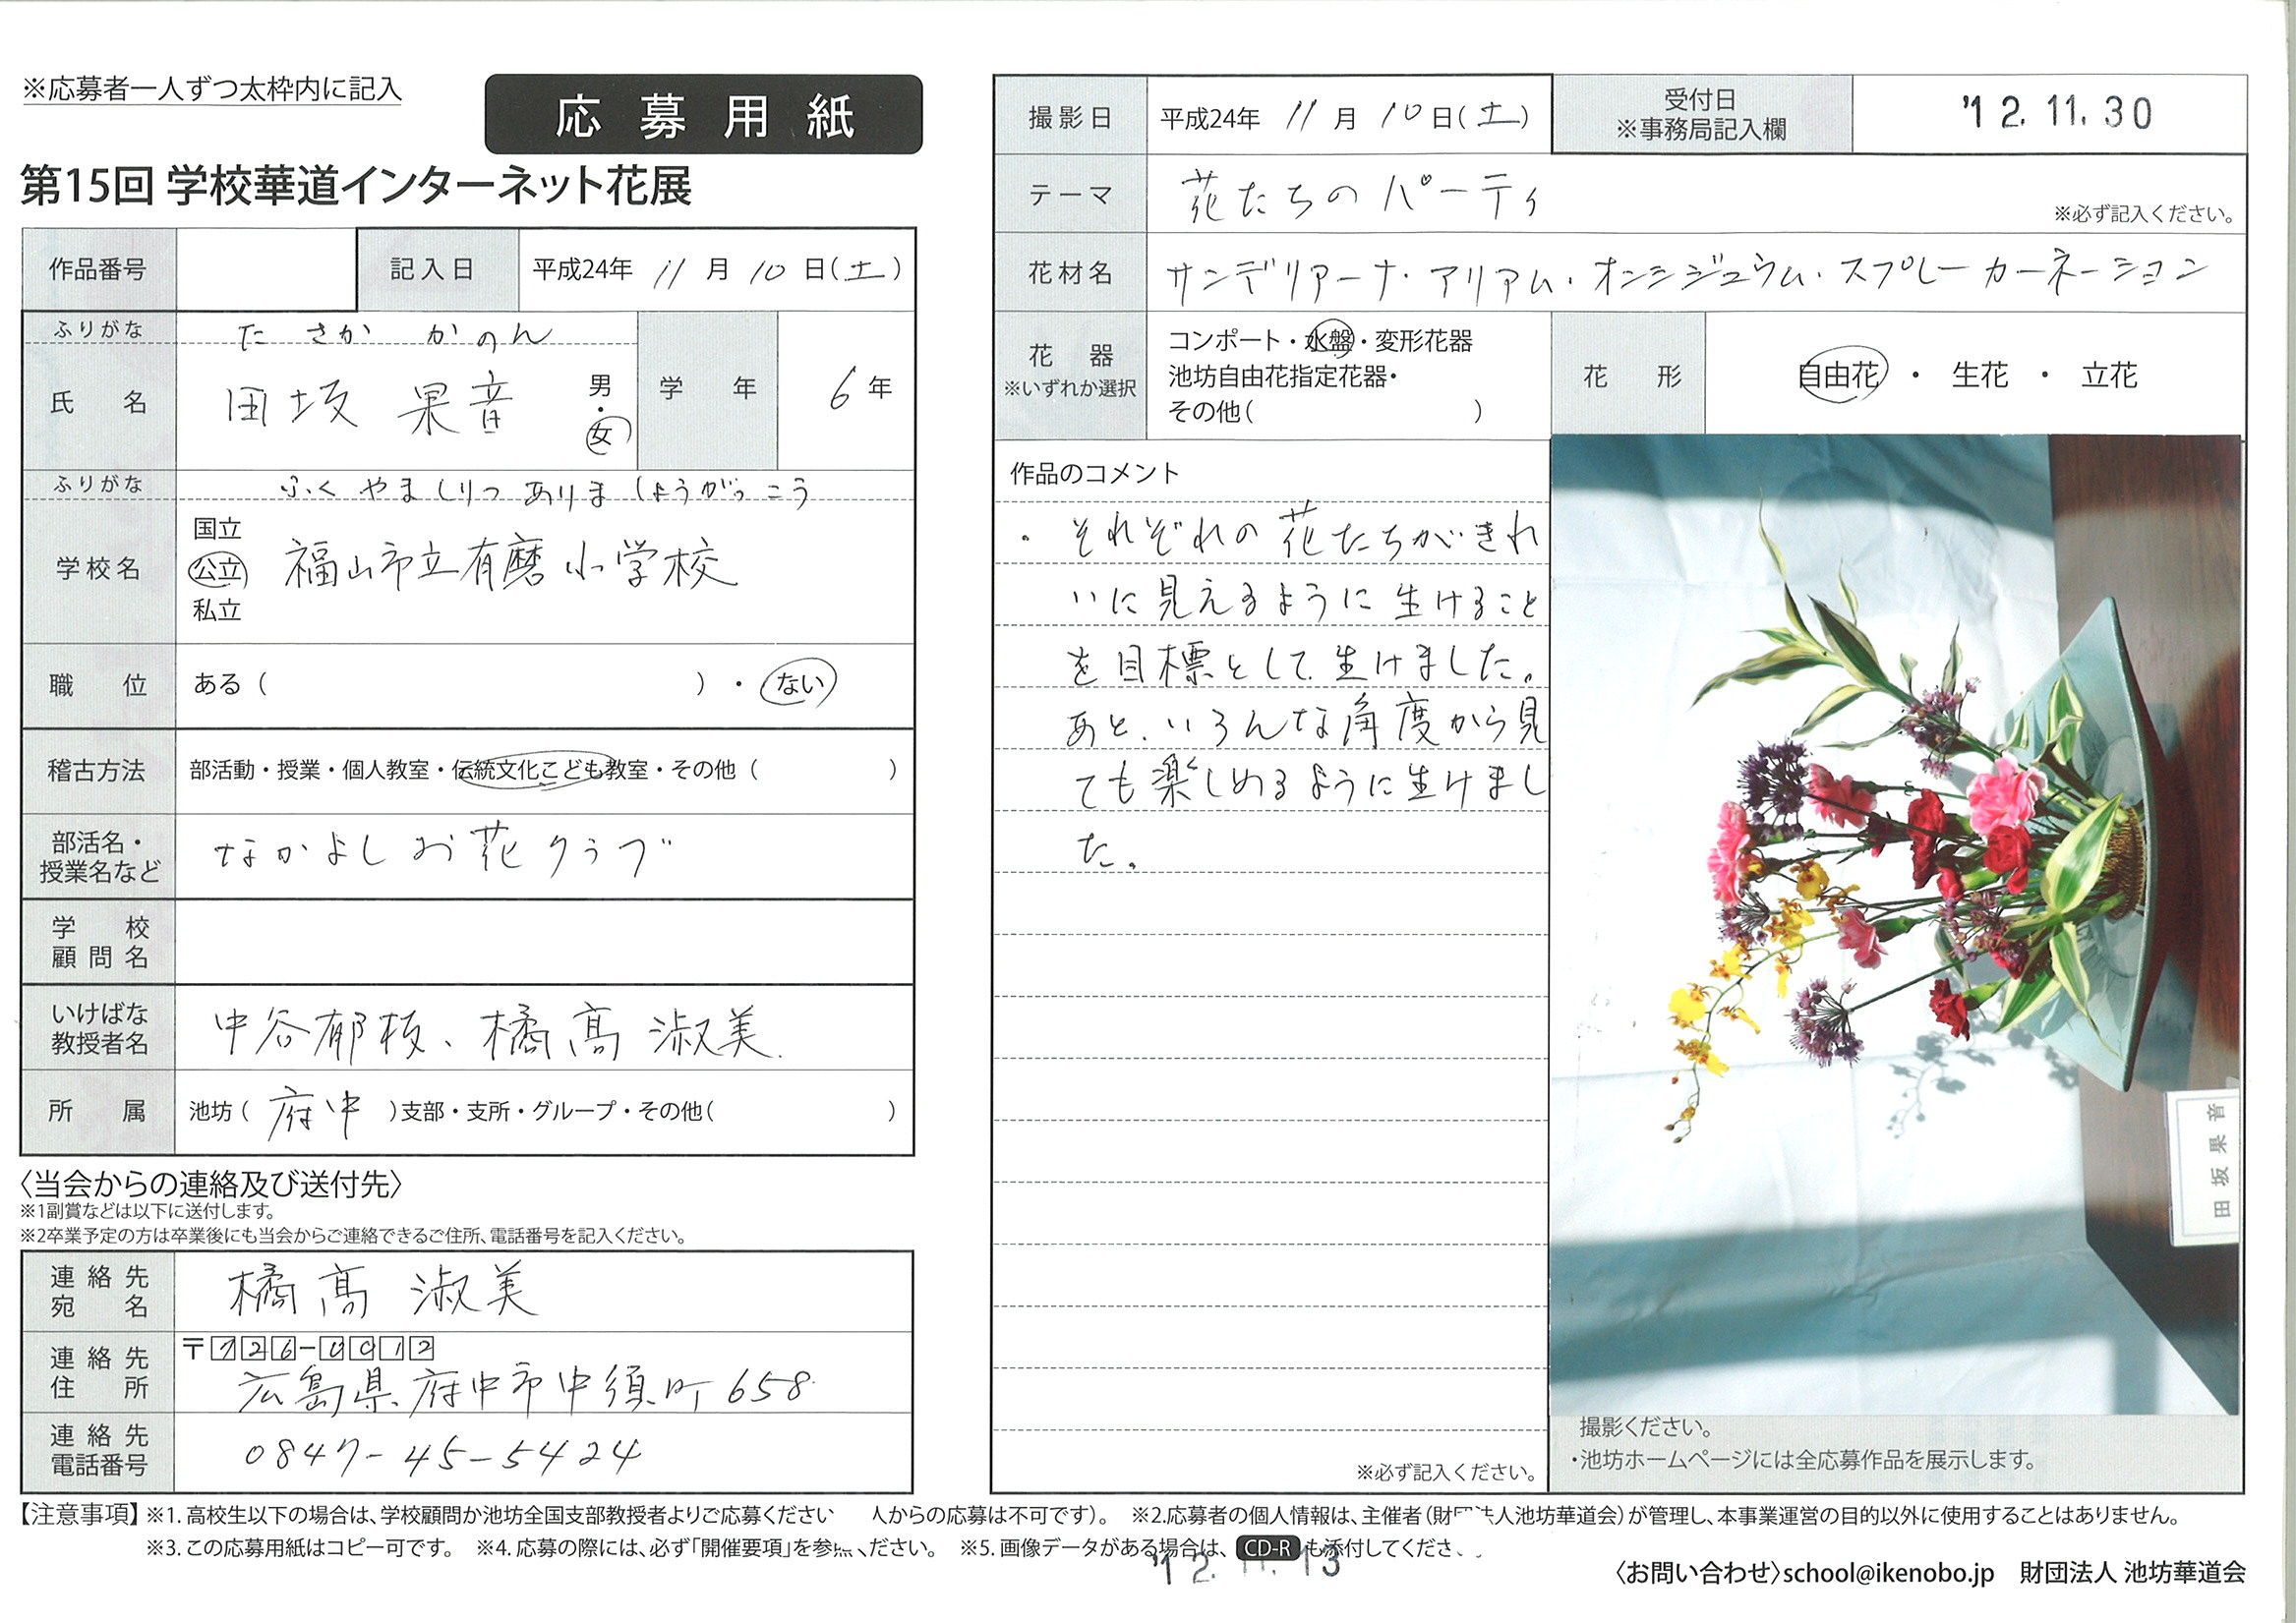 ※応募者一人ずつ太枠内に記入
応募用紙
第15回 学校華道インターネット花展
作品番号
記入日 平成24年 11月 10日(土)
ふりがな たさか かのん
氏名 田坂 果音 男・女
学年 6年
ふりがな ふくやましりつ ありましょうがっこう
学校名 国立 公立 私立 福山市立有磨小学校
職位 ある( )・ない
稽古方法 部活動・授業・個人教室・伝統文化こども教室・その他( )
部活名・授業名など なかよしお花クラブ
学校顧問名
いけばな教授者名 中谷郁枝、橘髙淑美
所属 池坊(府中)支部・支所・グループ・その他( )
〈当会からの連絡及び送付先〉
※1副賞などは以下に送付します。
※2卒業予定の方は卒業後にも当会からご連絡できるご住所、電話番号を記入ください。
連絡先宛名 橘髙 淑美
連絡先住所 〒726-0012
広島県府中市中須町658
連絡先電話番号 0847-45-5424
撮影日 平成24年 11月 10日(土)
受付日 ※事務局記入欄 '12.11.30
テーマ 花たちのパーティ
※必ず記入ください。
花材名 サンデリアーナ・アリアム・オンシジュウム・スプレーカーネーション
花器 ※いずれか選択
コンポート・水盤・変形花器
池坊自由花指定花器・
その他( )
花形 自由花 ・ 生花 ・ 立花
作品のコメント
・それぞれの花たちがきれ
いに見えるように生けること
を目標として生けました。
あと、いろんな角度から見
ても楽しめるように生けまし
た。
※必ず記入ください。
田坂果音
撮影ください。
・池坊ホームページには全応募作品を展示します。
【注意事項】※1.高校生以下の場合は、学校顧問か池坊全国支部教授者よりご応募ください 人からの応募は不可です)。 ※2.応募者の個人情報は、主催者(財団法人池坊華道会)が管理し、本事業運営の目的以外に使用することはありません。
※3.この応募用紙はコピー可です。 ※4.応募の際には、必ず「開催要項」を参照ください。 ※5.画像データがある場合は、CD-Rも添付してくださ
'12.11.13
〈お問い合わせ〉school@ikenobo.jp 財団法人 池坊華道会